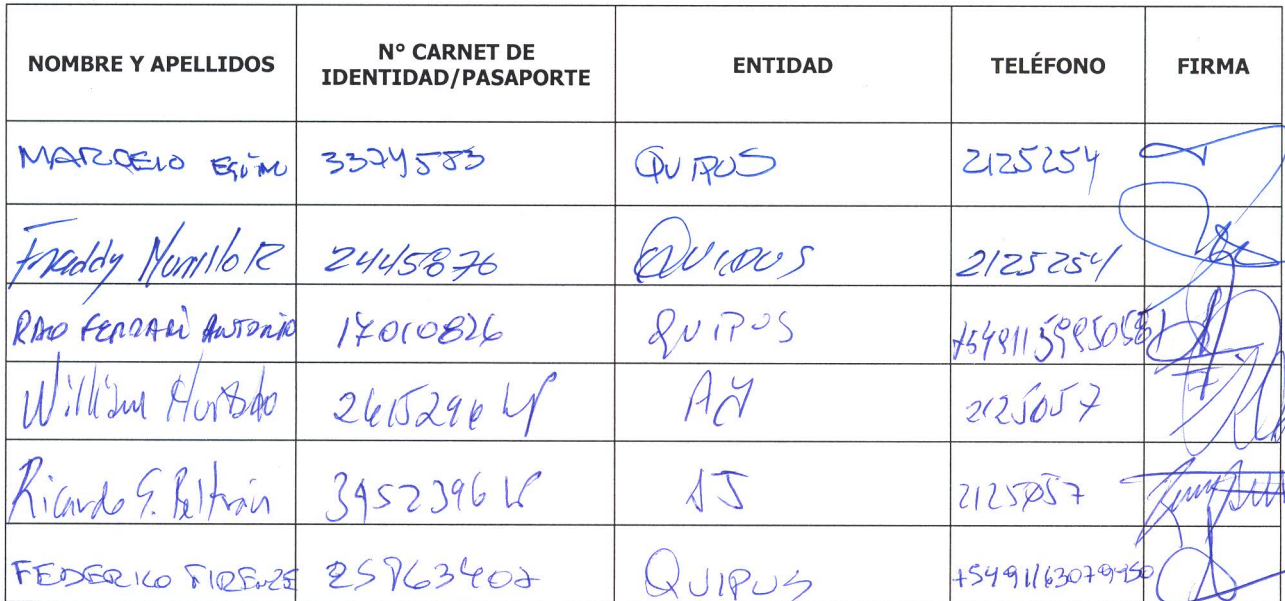 NOMBRE Y APELLIDOS N° CARNET DE IDENTIDAD/PASAPORTE ENTIDAD TELÉFONO FIRMA
MARCELO 3374583 QUIPUS 2125254
Freddy Murillo R 2445876 QUIPUS 2125254
FERRARI ANTONIO 17010826 QUIPUS
William Hurtado 2615296 LP AJ 2125057
Ricardo G. Beltrán 3452396 LP AJ 2125057
FEDERICO FIRENZE QUIPUS